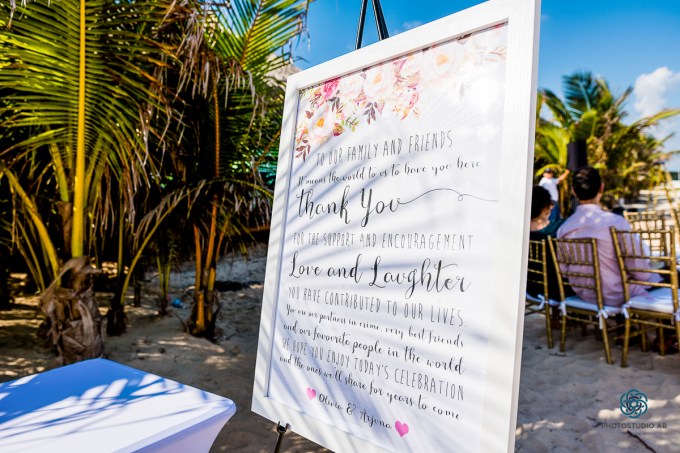 TO OUR FAMILY AND FRIENDS
It means the world to us to have you here
Thank You
FOR THE SUPPORT AND ENCOURAGEMENT
Love and Laughter
YOU HAVE CONTRIBUTED TO OUR LIVES.
You are our partners in crime, very best friends
and our favourite people in the world
WE HOPE YOU ENJOY TODAY'S CELEBRATION
and the ones we'll share for years to come
Olivia & Arjuna
PHOTOSTUDIO AB